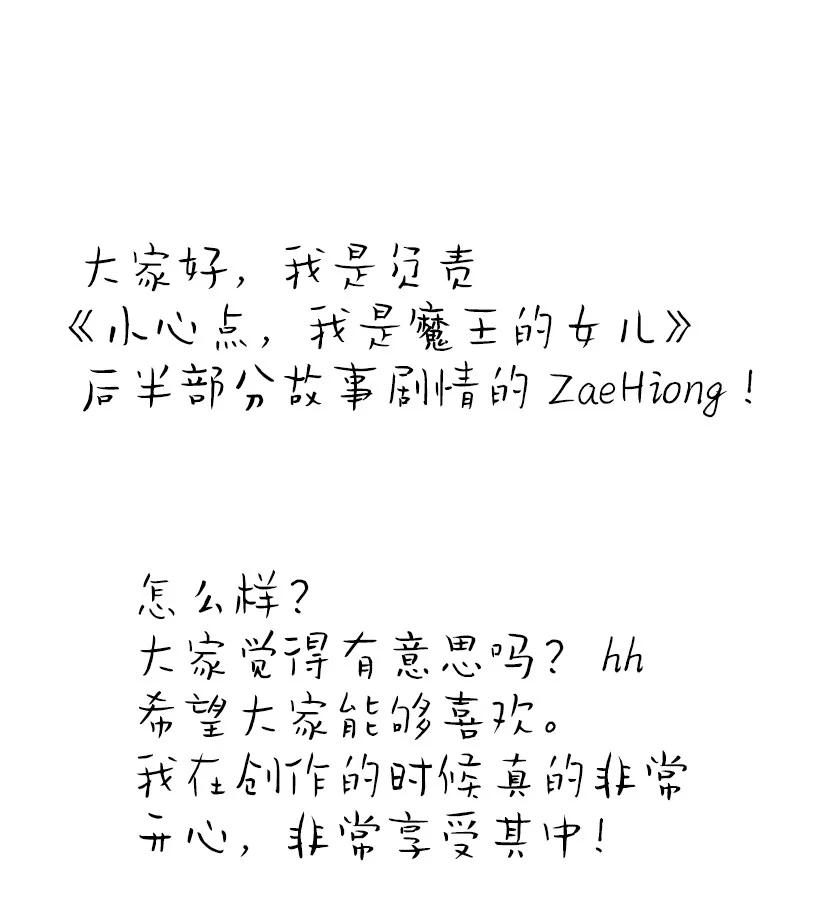 大家好，我是负责
《小心点，我是魔王的女儿》
后半部分故事剧情的 ZaeHiong！
怎么样？
大家觉得有意思吗？ hh
希望大家能够喜欢。
我在创作的时候真的非常
开心，非常享受其中！